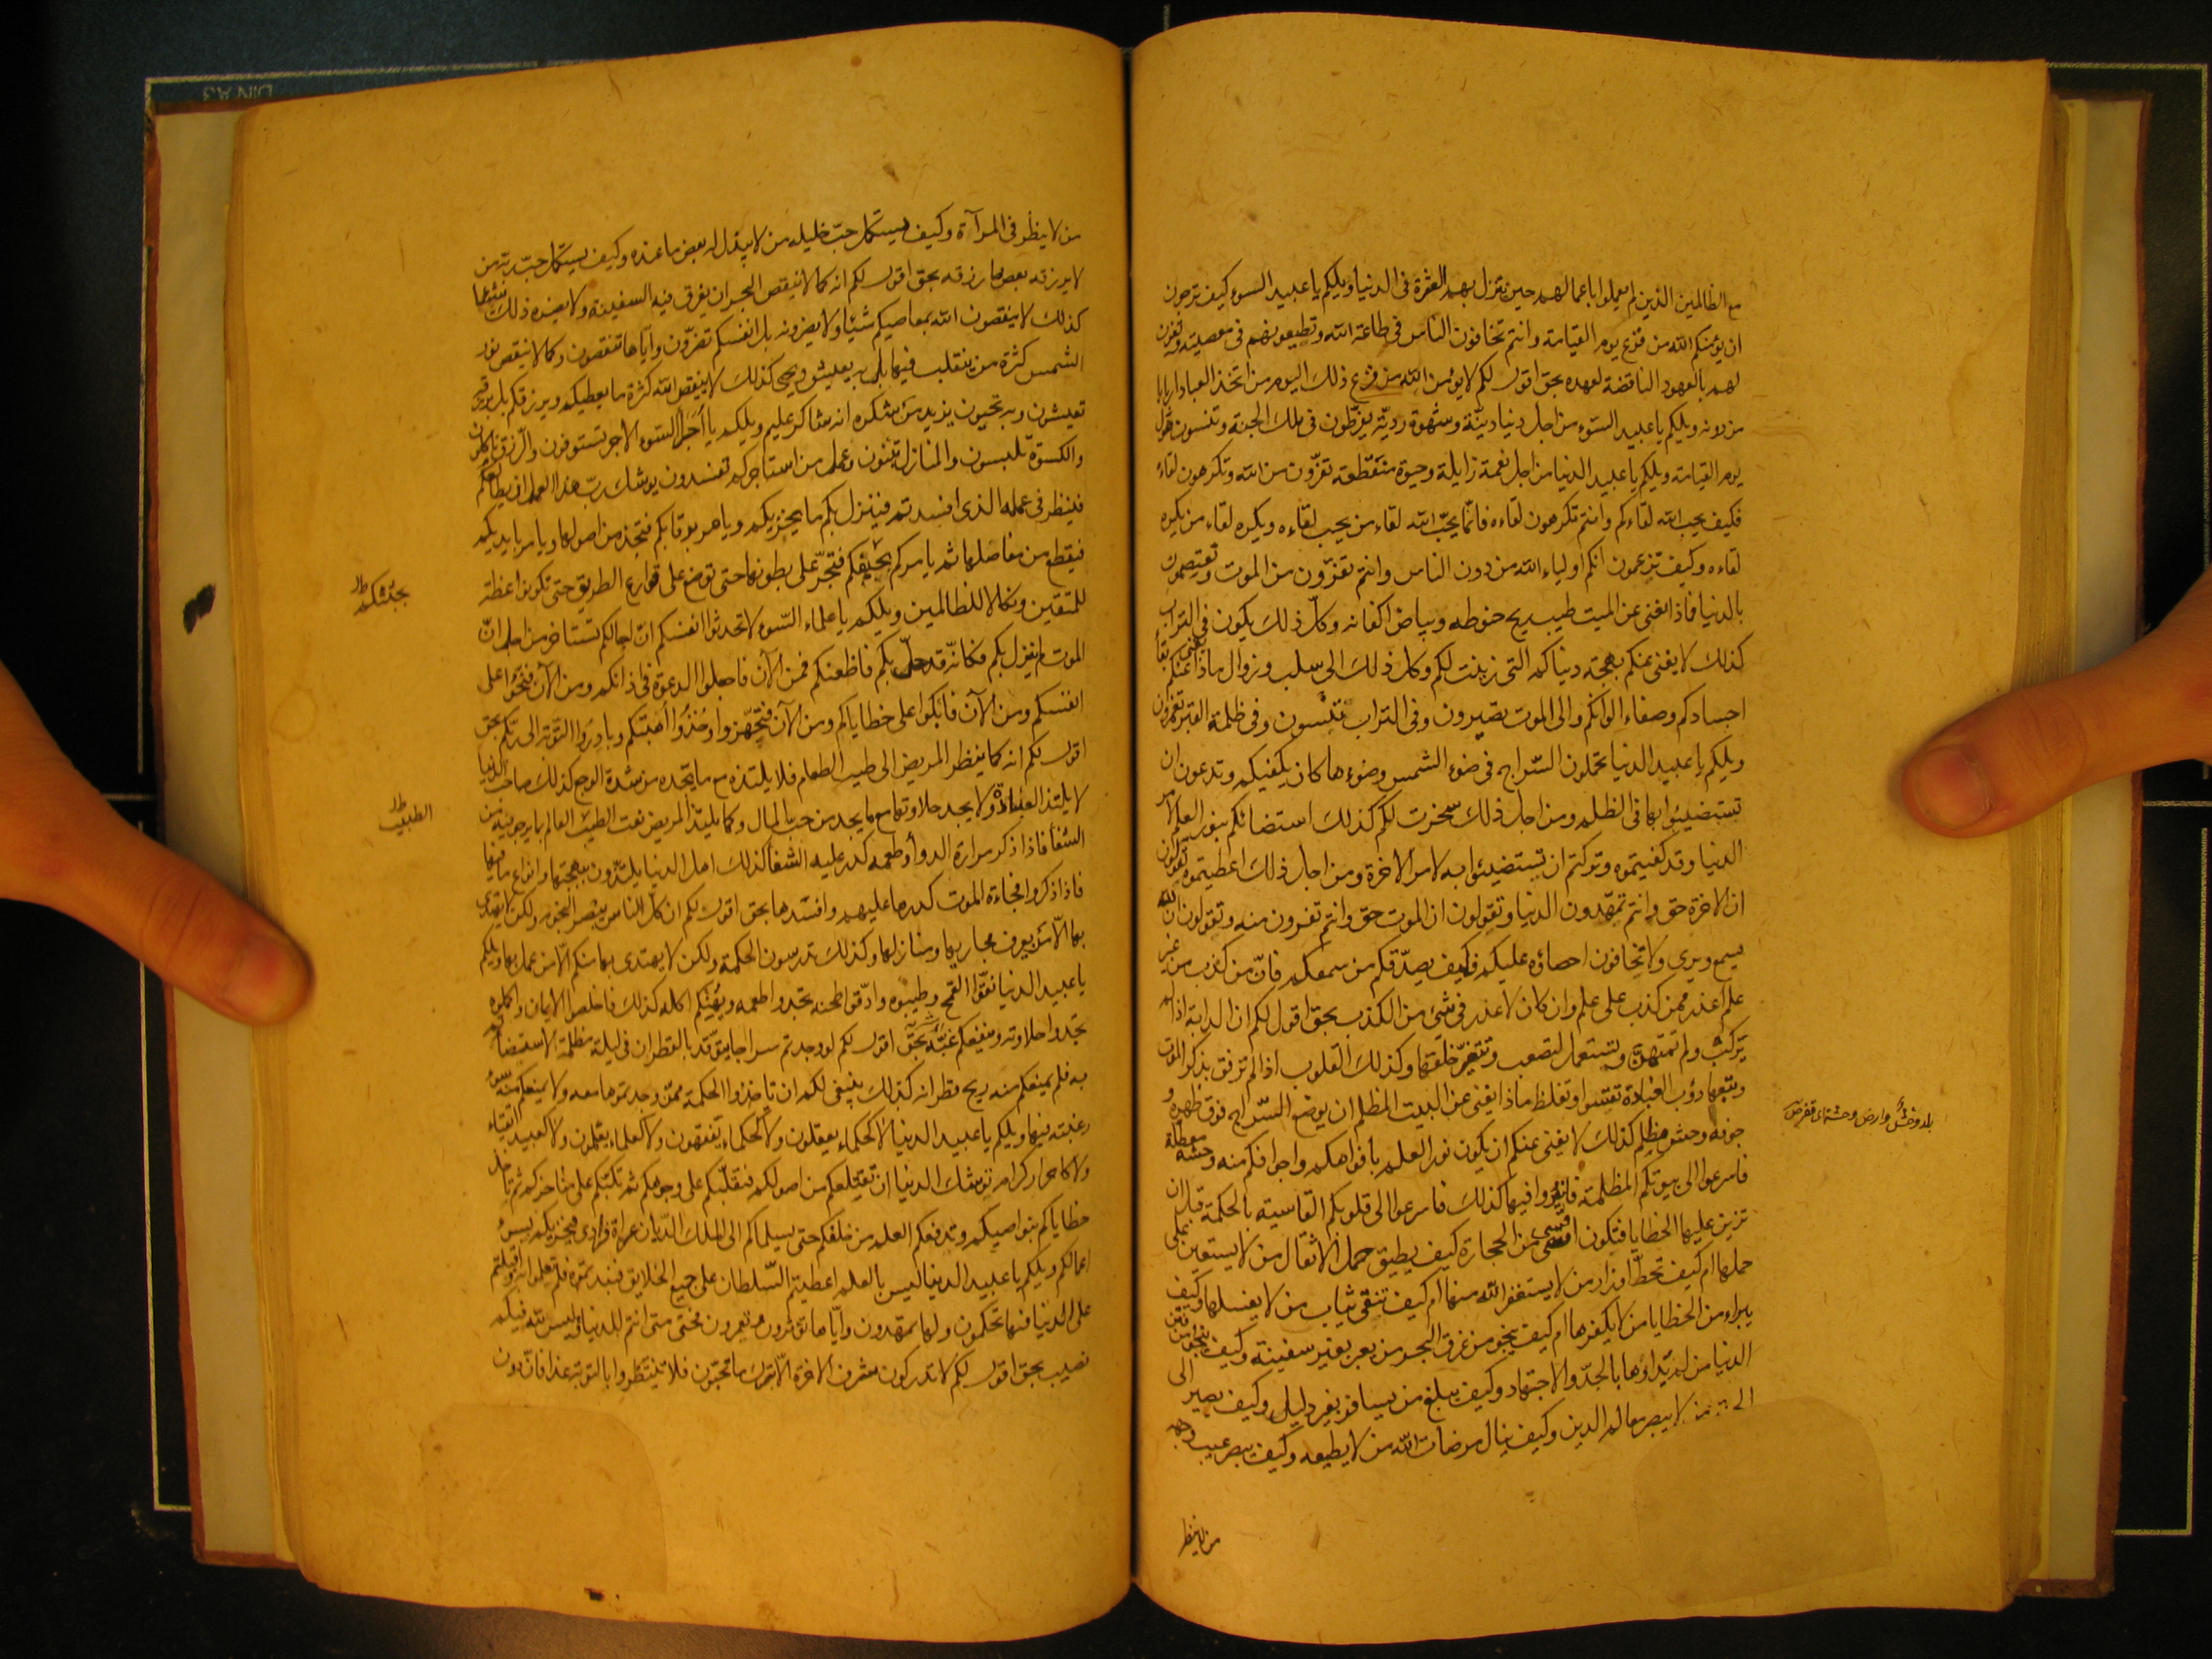 مع الظالمين الذين لم يعملوا باعمالهم حين ينزل بهم العثرة في الدنيا ويلكم يا عبيد السوء كيف ترجون
ان يؤمنكم الله من فزع يوم القيامة وانتم تخافون الناس في طاعة الله وتطيعونهم في معصيته وتفون
لهم بالعهود الناقضة لعهده بحق اقول لكم لا يؤمن الله من فزع ذلك اليوم من اتخذ العباد اربابا
من دونه ويلكم يا عبيد السوء من اجل دنيا دنيّة وشهوة رديّة تفرّطون في ملك الجنة وتنسون هول
يوم القيامة ويلكم يا عبيد الدنيا من اجل نعمة زايلة وحيوة منقطعة تفرّون من الله وتكرهون لقاءه
فكيف يحب الله لقاءكم وانتم تكرهون لقاءه فانّما يحبّ الله لقاء من يحب لقاءه ويكره لقاء من يكره
لقاءه وكيف تزعمون انكم اولياء الله من دون الناس وانتم تفرّون من الموت وتعتصمون
بالدنيا فماذا يغنى عن الميت طيب ريح حنوطه وبياض اكفانه وكلّ ذلك يكون في التراب
كذلك لا يغنى عنكم بهجة دنياكم التى زينت لكم وكل ذلك الى سلب وزوال ماذا يغنى عنكم نقاء
اجسادكم وصفاء الوانكم والى الموت تصيرون وفى التراب تنسون وفى ظلمة القبر تغمرون
ويلكم يا عبيد الدنيا تحملون السّراج في ضوء الشمس وضوءها كان يكفيكم وتدعون ان
تستضيئوا بها فى الظلم ومن اجل ذلك سخرت لكم كذلك استضأتم بنور العلم لامر
الدنيا وقد كفيتموه وتركتم ان تستضيئوا به لامر الاخرة ومن اجل ذلك اعطيتموه تقولون
ان الاخرة حق وانتم تمهّدون الدنيا وتقولون ان الموت حق وانتم تفرون منه وتقولون ان الله
يسمع ويرى ولا تخافون احصاؤه عليكم فكيف يصدّقكم من سمعكم فانّ من كذب من غير
علم اعذر ممن كذب على علم وان كان لا عذر في شئ من الكذب بحق اقول لكم ان الدابة اذا لم
تركب ولم تمتهن وتستعمل لتصعب وتتغيّر خلقها وكذلك القلوب اذا لم ترقق بذكر الموت
وتتبعها دؤب العبادة تقسوا وتغلظ ماذا يغنى عن البيت المظلم ان يوضع السّراج فوق ظهره و
جوفه وحش مظلم كذلك لا يغنى عنكم ان يكون نور العلم بافواهكم واجوافكم منه وحشة معطلة
فاسرعوا الى بيوتكم المظلمة فانيروا فيها كذلك فاسرعوا الى قلوبكم القاسية بالحكمة قبل ان
ترين عليها الخطايا فتكون اقسى من الحجارة كيف يطيق حمل الاثقال من لا يستعين على
حملها ام كيف تحطّ اوزار من لا يستغفر الله منها ام كيف تنقى ثياب من لا يغسلها وكيف
يبراء من الخطايا من لا يكفرها ام كيف ينجو من غرق البحر من يعبر بغير سفينة وكيف ينجو من فتن
الدنيا من لم يداوها بالجدّ والاجتهاد وكيف يبلغ من يسافر بغير دليل وكيف يصير الى
الجنة من لا يبصر معالم الدين وكيف ينال مرضات الله من لا يطيعه وكيف يبصر عيب وجهه
من لا ينظر
بلد وحش وارض وحشة اى قفر ص
من لا ينظر فى المرآة وكيف يستكمل حبّ خليله من لا يبذل له بعض ما عنده وكيف يستكمل حبّ ربّه من
لا يرزقه بعض ما رزقه بحق اقول لكم انه كما لا ينقص البحر ان يغرق فيه السفينة ولا يضره ذلك شيئا
كذلك لا ينقصون الله بمعاصيكم شيئا ولا يضرونه بل انفسكم تضرّون وايّاها تنقصون وكما لا ينقص نور
الشمس كثرة من يتقلب فيها بل به يعيش ويحيى كذلك لا ينقص الله كثرة ما يعطيكم ويرزقكم بل برزقه
تعيشون وبه تحيون يزيد من شكره انه شاكر عليم ويلكم يا اُجراء السوء الاجر تستوفون والرّزق تاكلون
والكسوة تلبسون والمنازل تبنون وعمل من استاجركم تفسدون يوشك ربّ هذا العمل ان يطالعكم
فينظر فى عمله الذى افسدتم فينزل بكم ما يخزيكم ويامر برقابكم فتجذ من اصولها ويامر بايديكم
فيقطع من مفاصلها ثم يامركم بجثثكم فتجرّ على بطونها حتى توضع على قوارع الطريق حتى تكونوا عظة
للمتقين ونكالا للظالمين ويلكم يا علماء السّوء لا تحدثوا انفسكم انّ اجالكم تستاخر من اجل انّ
الموت لم ينزل بكم فكانّه قد حلّ بكم فاظعنكم فمن الآن فاجعلوا الدعوة في اذانكم ومن الآن فنوحوا على
انفسكم ومن الآن فابكوا على خطاياكم ومن الآن فتجهّزوا وخُذوا اُهبتكم وبادروا التّوبة الى ربّكم بحق
اقول لكم انه كما ينظر المريض الى طيب الطعام فلا يلتذه مع ما يجده من شدة الوجع كذلك صاحب الدنيا
لا يلتذ العبادة ولا يجد حلاوتها مع ما يجد من حب المال وكما يلتذّ المريض نعت الطبيب العالم بما يرجو فيه من
الشفا فاذا ذكر مرارة الدوا وطعمه كدر عليه الشفا كذلك اهل الدنيا يلتذّون ببهجتها وانواع ما فيها
فاذا ذكروا فجاءة الموت كدرها عليهم وافسدها بحق اقول لكم ان كلّ الناس يبصر النجوم ولكن لا يهتدى
بها الّا من يعرف مجاريها ومنازلها وكذلك تدرسون الحكمة ولكن لا يهتدى بها منكم الّا من عمل بها ويلكم
يا عبيد الدنيا نقوّا القمح وطيبوه وادقوا طحنه تجدوا طعمه ويهنئكم اكله كذلك فاخلصوا الايمان واكملوه
تجدوا حلاوته وينفعكم غبّه بحقّ اقول لكم لو وجدتم سراجا يتوقّد بالقطران فى ليلة مظلمة لاستضأتم
به فلم يمنعكم منه ريح قطرانه كذلك ينبغى لكم ان تاخذوا الحكمة ممّن وجدتموها معه ولا يمنعكم منه سوء
رغبته فيها ويلكم يا عبيد الدنيا لا كحكماء يعقلون ولا كحلماء تفقهون ولا كعلماء يعلمون ولا كعبيد اتقياء
ولا كاحرار كرام توشك الدنيا ان تقتلعكم من اصولكم فتقلّبكم على وجوهكم ثم تكبّكم على مناخركم ثم تاخذ
خطاياكم بنواصيكم ويدفعكم العلم من خلفكم حتى يسلماكم الى الملك الدّيان عراة فرادى فيجزيكم بسوء
اعمالكم ويلكم يا عبيد الدنيا اليس بالعلم اعطيتم السّلطان على جميع الخلايق فنبذتموه فلم تعملوا به واقبلتم
على الدنيا فبها تحكمون ولها تمهدون وايّاها تؤثرون وتعمرون فحتى متى انتم للدنيا وليس لله فيكم
نصيب بحق اقول لكم لا تدركون شرف الاخرة الّا بترك ما تحبّون فلا تنتظروا بالتوبة غدا فانّ دون
بجثثكم ظ
الطبيب ظ